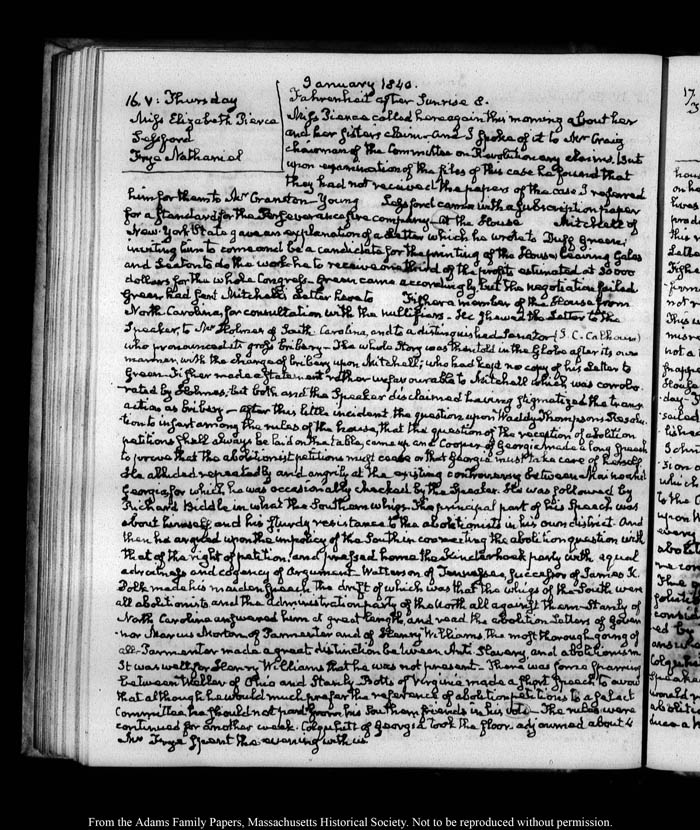 January 1840.
16. V: Thursday
Miss Elizabeth Pierce
Lessford
Frye Nathaniel
Fahrenheit after Sunrise 8.
Miss Pierce called here again this morning about her
and her sisters claim and I spoke of it to Mr Craig
chairman of the Committee on Revolutionary claims. But
upon examination of the files of this case he found that
they had not received the papers of the case. I referred
him for them to Mr Cranston Young Lessford came with a subscription paper
for a Standard for the Perseverance fire company. At the House Mitchell of
New-York State gave an explanation of a Letter which he wrote to Duff Green,
inviting him to come and be a candidate for the printing of the House, leaving Gales
and Seaton to do the work he to receive one third of the profits estimated at 30000
dollars for the whole Congress. Green came accordingly, but the negotiation failed
Green had sent Mitchell's Letter here to Fisher a member of the House from
North Carolina, for consultation with the nullifiers. He shewed the Letter to the
Speaker, to Mr Holmes of South Carolina, and to a distinguished Senator (J. C. Calhoun)
who pronounced it gross bribery. The whole Story was then told in the Globe after its own
manner, with the charge of bribery upon Mitchell; who had kept no copy of his Letter to
Green. Fisher made a Statement rather unfavourable to Mitchell which was corrobo-
-rated by Holmes, but both and the Speaker disclaimed having stigmatized the trans
action as bribery – After this little incident the question upon Waddy Thompson's Resolu-
tion to insert among the rules of the house, that the question of the reception of abolition
petitions shall always be laid on the table, came up and Cooper of Georgia made a long Speech
to prove that the abolitionist petitions must cease or that Georgia must take care of herself
He alluded repeatedly and angrily at the existing controversy between Maine and
Georgia for which he was occasionally checked by the Speaker. He was followed by
Richard Biddle in what the Southern whigs The principal part of his Speech was
about himself and his sturdy resistance to the abolitionists in his own district. And
then he argued upon the impolicy of the South in connecting the abolition question with
that of the right of petition, and pressed home the Kinderhook party with equal
adroitness and cogency of Argument. Watterson of Tennessee, successor of James K.
Polk made his maiden Speech the drift of which was that the whigs of the South were
all abolitionists and the administration party of the North all against them – Stanly of
North Carolina answered him at great length, and read the abolition Letters of Gover
-nor Marcus Morton, of Parmenter and of Henry Williams the most thorough-going of
all. Parmenter made a great distinction between Anti Slavery and abolitionism
It was well for Henry Williams that he was not present – There was some sparring
between Weller of Ohio and Stanly. Botts of Virginia made a short Speech to avow
that although he would much prefer the reference of abolition petitions to a select
Committee he should not part from his Southern friends in his vote – The rules were
continued for another week. Colquitt of Georgia took the floor. adjourned about 4
Mr Frye spent the evening with us
17.
From the Adams Family Papers, Massachusetts Historical Society. Not to be reproduced without permission.